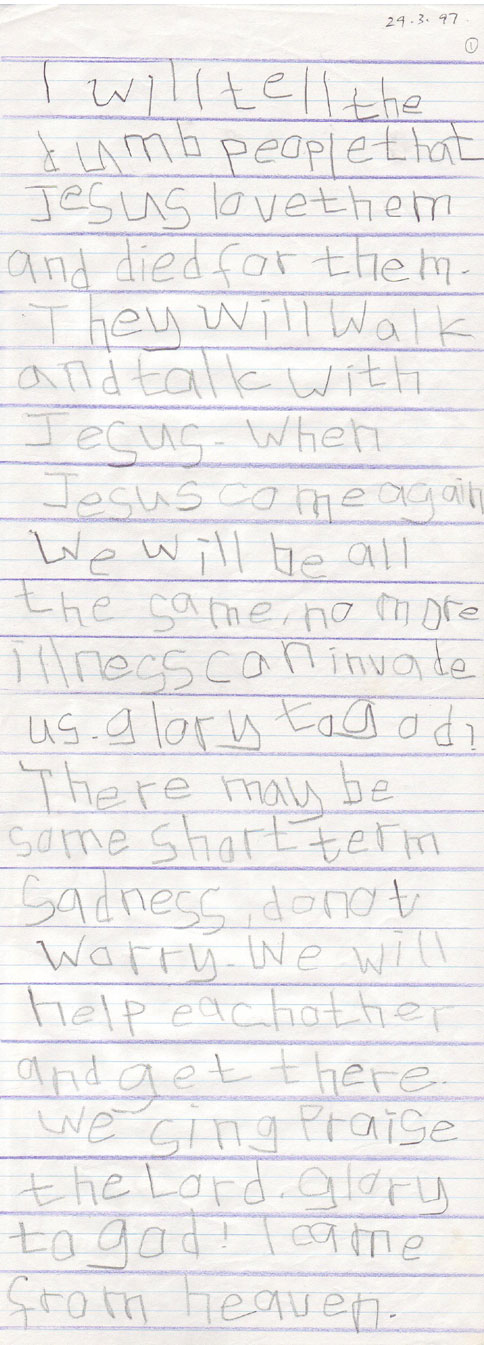 29.3.97.
1
I will tell the
dumb people that
Jesus love them
and died for them.
They will walk
and talk with
Jesus. When
Jesus come again
We will be all
the same, no more
illness can invade
us. glory to god!
There may be
some short term
sadness, do not
worry. We will
help each other
and get there.
We sing Praise
the Lord. glory
to god! I came
from heaven.